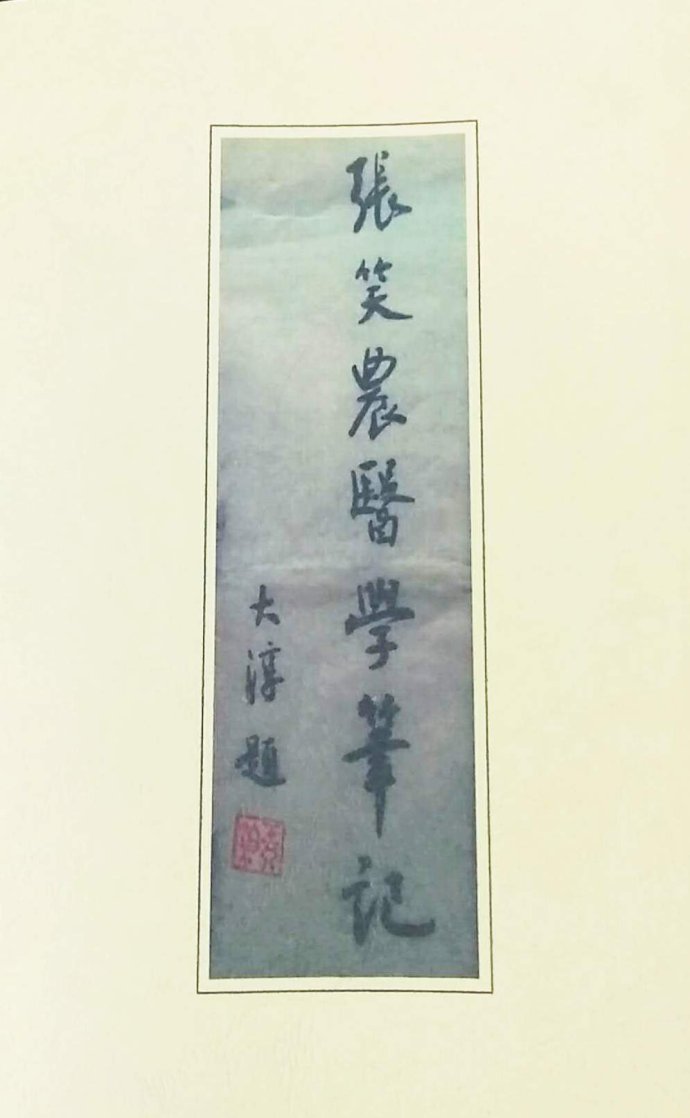 張笑農醫學筆記
大淳題